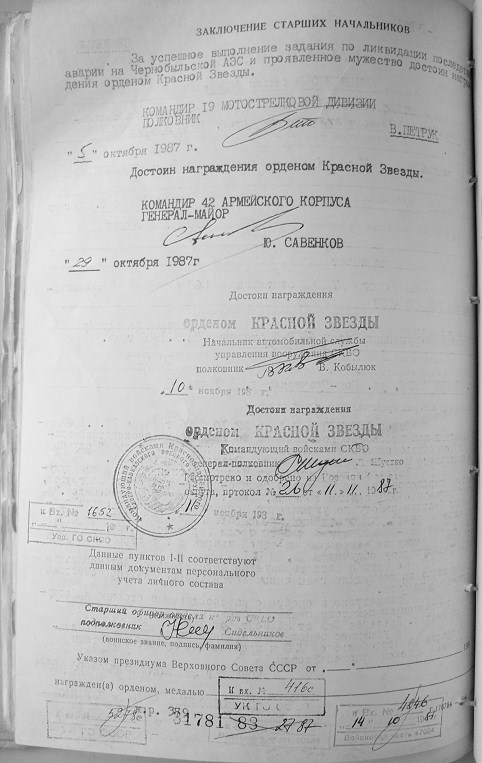 ЗАКЛЮЧЕНИЕ СТАРШИХ НАЧАЛЬНИКОВ
За успешное выполнение задания по ликвидации
аварии на Чернобыльской АЭС и проявленное мужество достоин
дения орденом Красной Звезды.
КОМАНДИР 19 МОТОСТРЕЛКОВОЙ ДИВИЗИИ
ПОЛКОВНИК
В.ПЕТРУК
"5" октября 1987 г.
Достоин награждения орденом Красной Звезды.
КОМАНДИР 42 АРМЕЙСКОГО КОРПУСА
ГЕНЕРАЛ-МАЙОР
Ю. САВЕНКОВ
"29" октября 1987г
Достоин награждения
орденом КРАСНОЙ ЗВЕЗДЫ
Начальник автомобильной службы
управления вооружения СКВО
полковник В. Кобылюк
10 ноября 198
Достоин награждения
орденом КРАСНОЙ ЗВЕЗДЫ
Командующий войсками СКВО
генерал-полковник Шустко
Рассмотрено и одобрено на
округа, протокол № 26 от «11» 11 1987г.
11 ноября 198 г.
к Вх. № 1652
Упр. ГО СКВО
Данные пунктов I-II соответствуют
данным документам персонального
учета личного состава
Старший офицер отдела кадров СКВО
подполковник
(воинское звание, подпись, фамилия)
Указом президиума Верховного Совета СССР от
награжден(а) орденом, медалью
К вх. № 416с
31781 83 2787
к Вх. №
14 10 87